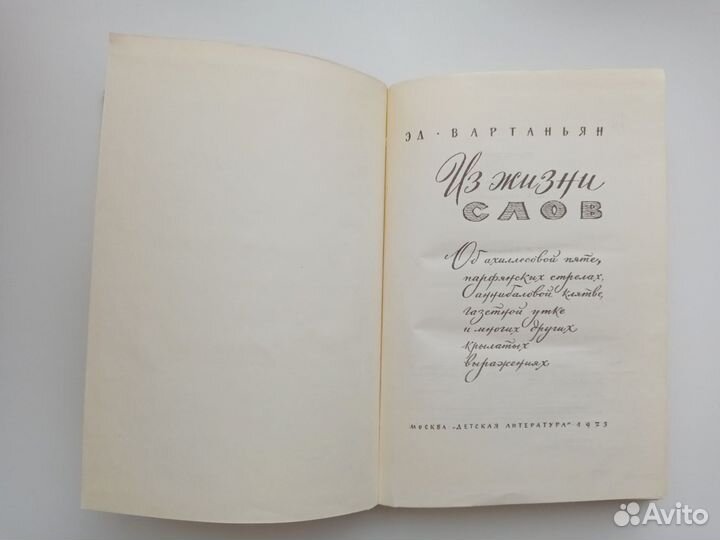 ЭД · ВАРТАНЬЯН
Из жизни
СЛОВ
Об ахиллесовой пяте,
парфянских стрелах,
аннибаловой клятве,
газетной утке
и многих других
крылатых
выражениях
МОСКВА „ДЕТСКАЯ ЛИТЕРАТУРА" 1973
Avito